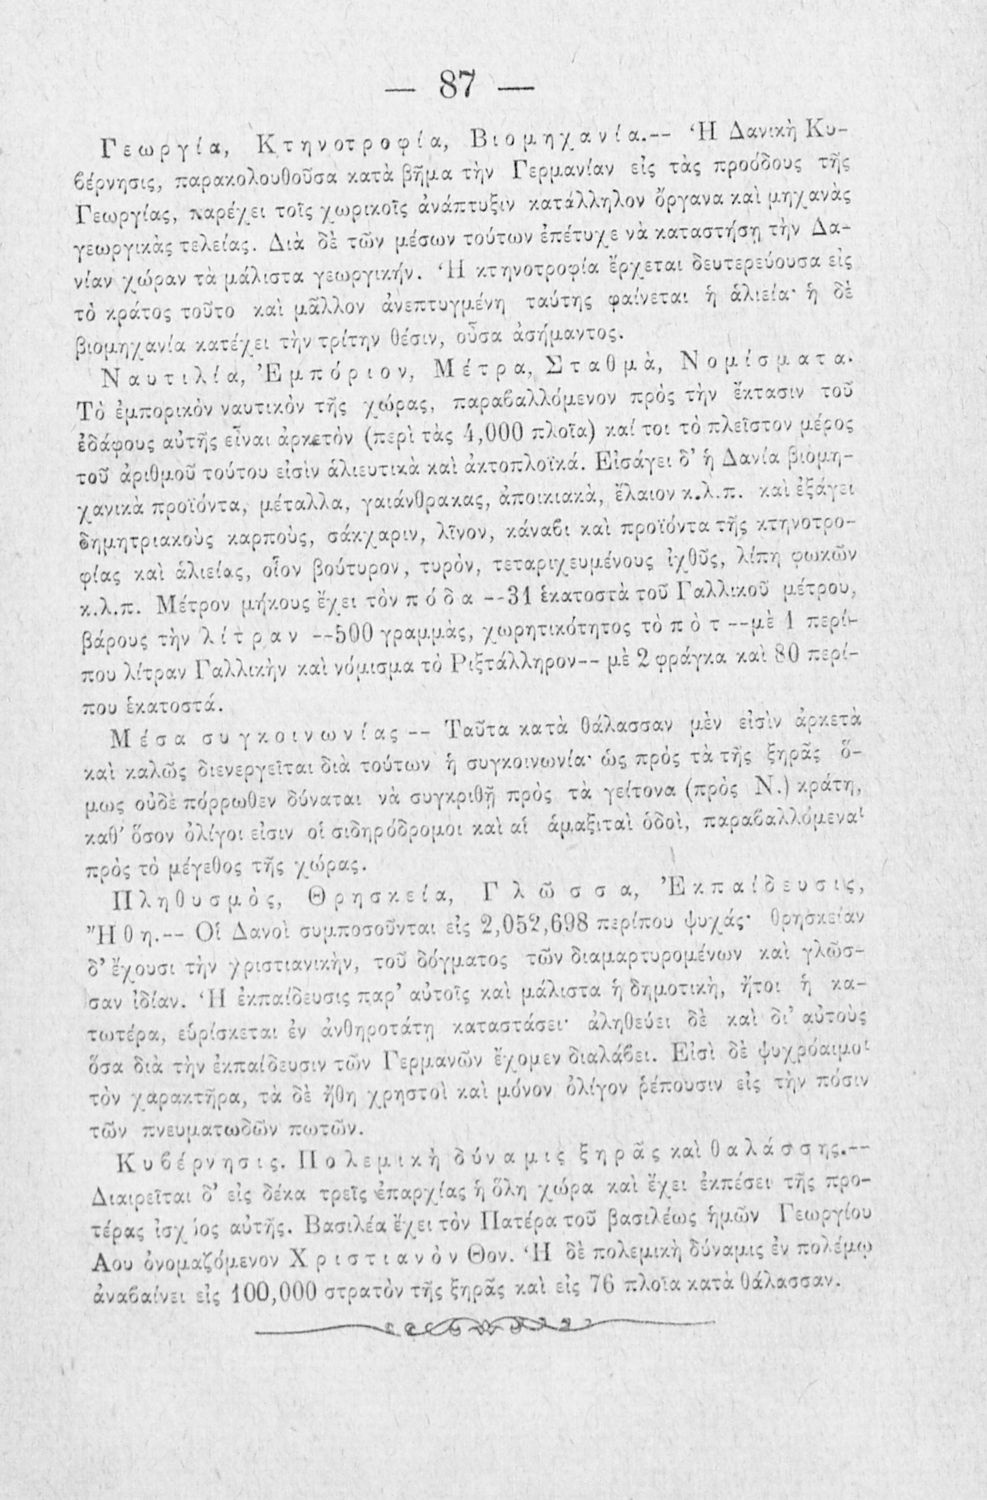 — 87 —
Γεωργία, Κτηνοτροφία, Βιομηχανία.— Ἡ Δανικὴ Κυ-
βέρνησις, παρακολουθοῦσα κατὰ βῆμα τὴν Γερμανίαν εἰς τὰς προόδους τῆς
Γεωργίας, παρέχει τοῖς χωρικοῖς ἀνάπτυξιν κατάλληλον ὄργανα καὶ μηχανὰς
γεωργικὰς τελείας. Διὰ δὲ τῶν μέσων τούτων ἐπέτυχε νὰ καταστήσῃ τὴν Δα-
νίαν χώραν τὰ μάλιστα γεωργικήν. Ἡ κτηνοτροφία ἔρχεται δευτερεύουσα εἰς
τὸ κράτος τοῦτο καὶ μᾶλλον ἀνεπτυγμένη ταύτης φαίνεται ἡ ἁλιεία· ἡ δὲ
βιομηχανία κατέχει τὴν τρίτην θέσιν, οὖσα ἀσήμαντος.
Ναυτιλία, Ἐμπόριον, Μέτρα, Σταθμὰ, Νομίσματα.
Τὸ ἐμπορικὸν ναυτικὸν τῆς χώρας, παραβαλλόμενον πρὸς τὴν ἔκτασιν τοῦ
ἐδάφους αὐτῆς εἶναι ἀρκετὸν (περὶ τὰς 4,000 πλοῖα) καί τοι τὸ πλεῖστον μέρος
τοῦ ἀριθμοῦ τούτου εἰσὶν ἁλιευτικὰ καὶ ἀκτοπλοϊκά. Εἰσάγει δ' ἡ Δανία βιομη-
χανικὰ προϊόντα, μέταλλα, γαιάνθρακας, ἀποικιακὰ, ἔλαιον κ.λ.π. καὶ ἐξάγει
δημητριακοὺς καρποὺς, σάκχαριν, λῖνον, κάναβι καὶ προϊόντα τῆς κτηνοτρο-
φίας καὶ ἁλιείας, οἷον βούτυρον, τυρὸν, τεταριχευμένους ἰχθῦς, λίπη φωκῶν
κ.λ.π. Μέτρον μήκους ἔχει τὸν πόδα —31 ἑκατοστὰ τοῦ Γαλλικοῦ μέτρου,
βάρους τὴν λίτραν —500 γραμμὰς, χωρητικότητος τὸ πὸτ —μὲ 1 περί-
που λίτραν Γαλλικὴν καὶ νόμισμα τὸ Ριξτάλληρον— μὲ 2 φράγκα καὶ 80 περί-
που ἑκατοστά.
Μέσα συγκοινωνίας — Ταῦτα κατὰ θάλασσαν μὲν εἰσὶν ἀρκετὰ
καὶ καλῶς διενεργεῖται διὰ τούτων ἡ συγκοινωνία· ὡς πρὸς τὰ τῆς ξηρᾶς ὅ-
μως οὐδὲ πόρρωθεν δύναται νὰ συγκριθῇ πρὸς τὰ γείτονα (πρὸς Ν.) κράτη,
καθ' ὅσον ὀλίγοι εἰσιν οἱ σιδηρόδρομοι καὶ αἱ ἁμαξιταὶ ὁδοὶ, παραβαλλόμεναι
πρὸς τὸ μέγεθος τῆς χώρας.
Πληθυσμὸς, Θρησκεία, Γλῶσσα, Ἐκπαίδευσις,
Ἤθη.— Οἱ Δανοὶ συμποσοῦνται εἰς 2,052,698 περίπου ψυχάς· θρησκείαν
δ' ἔχουσι τὴν χριστιανικὴν, τοῦ δόγματος τῶν διαμαρτυρομένων καὶ γλῶσ-
σαν ἰδίαν. Ἡ ἐκπαίδευσις παρ' αὐτοῖς καὶ μάλιστα ἡ δημοτικὴ, ἤτοι ἡ κα-
τωτέρα, εὑρίσκεται ἐν ἀνθηροτάτῃ καταστάσει· ἀληθεύει δὲ καὶ δι' αὐτοὺς
ὅσα διὰ τὴν ἐκπαίδευσιν τῶν Γερμανῶν ἔχομεν διαλάβει. Εἰσὶ δὲ ψυχρόαιμοι
τὸν χαρακτῆρα, τὰ δὲ ἤθη χρηστοὶ καὶ μόνον ὀλίγον ῥέπουσιν εἰς τὴν πόσιν
τῶν πνευματωδῶν ποτῶν.
Κυβέρνησις. Πολεμικὴ δύναμις ξηρᾶς καὶ θαλάσσης.—
Διαιρεῖται δ' εἰς δέκα τρεῖς ἐπαρχίας ἡ ὅλη χώρα καὶ ἔχει ἐκπέσει τῆς προ-
τέρας ἰσχύος αὐτῆς. Βασιλέα ἔχει τὸν Πατέρα τοῦ βασιλέως ἡμῶν Γεωργίου
Αου ὀνομαζόμενον Χριστιανὸν Θον. Ἡ δὲ πολεμικὴ δύναμις ἐν πολέμῳ
ἀναβαίνει εἰς 100,000 στρατὸν τῆς ξηρᾶς καὶ εἰς 76 πλοῖα κατὰ θάλασσαν.